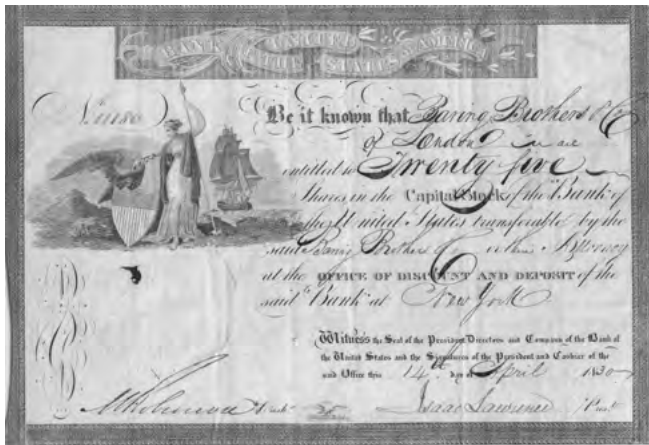 BANK OF THE UNITED STATES OF AMERICA
Be it known that Baring Brothers & Co
of London
entitled to Twenty five
Shares in the Capital Stock of the "Bank of
the United States transferable by the
said Baring Brothers & Co or their Attorney
at the OFFICE OF DISCOUNT AND DEPOSIT of the
said "Bank" at New York
Witness the Seal of the President Directors and Company of the Bank of
the United States and the Signatures of the President and Cashier of the
said Office this 14th day of April 1830
Isaac Lawrence Prest